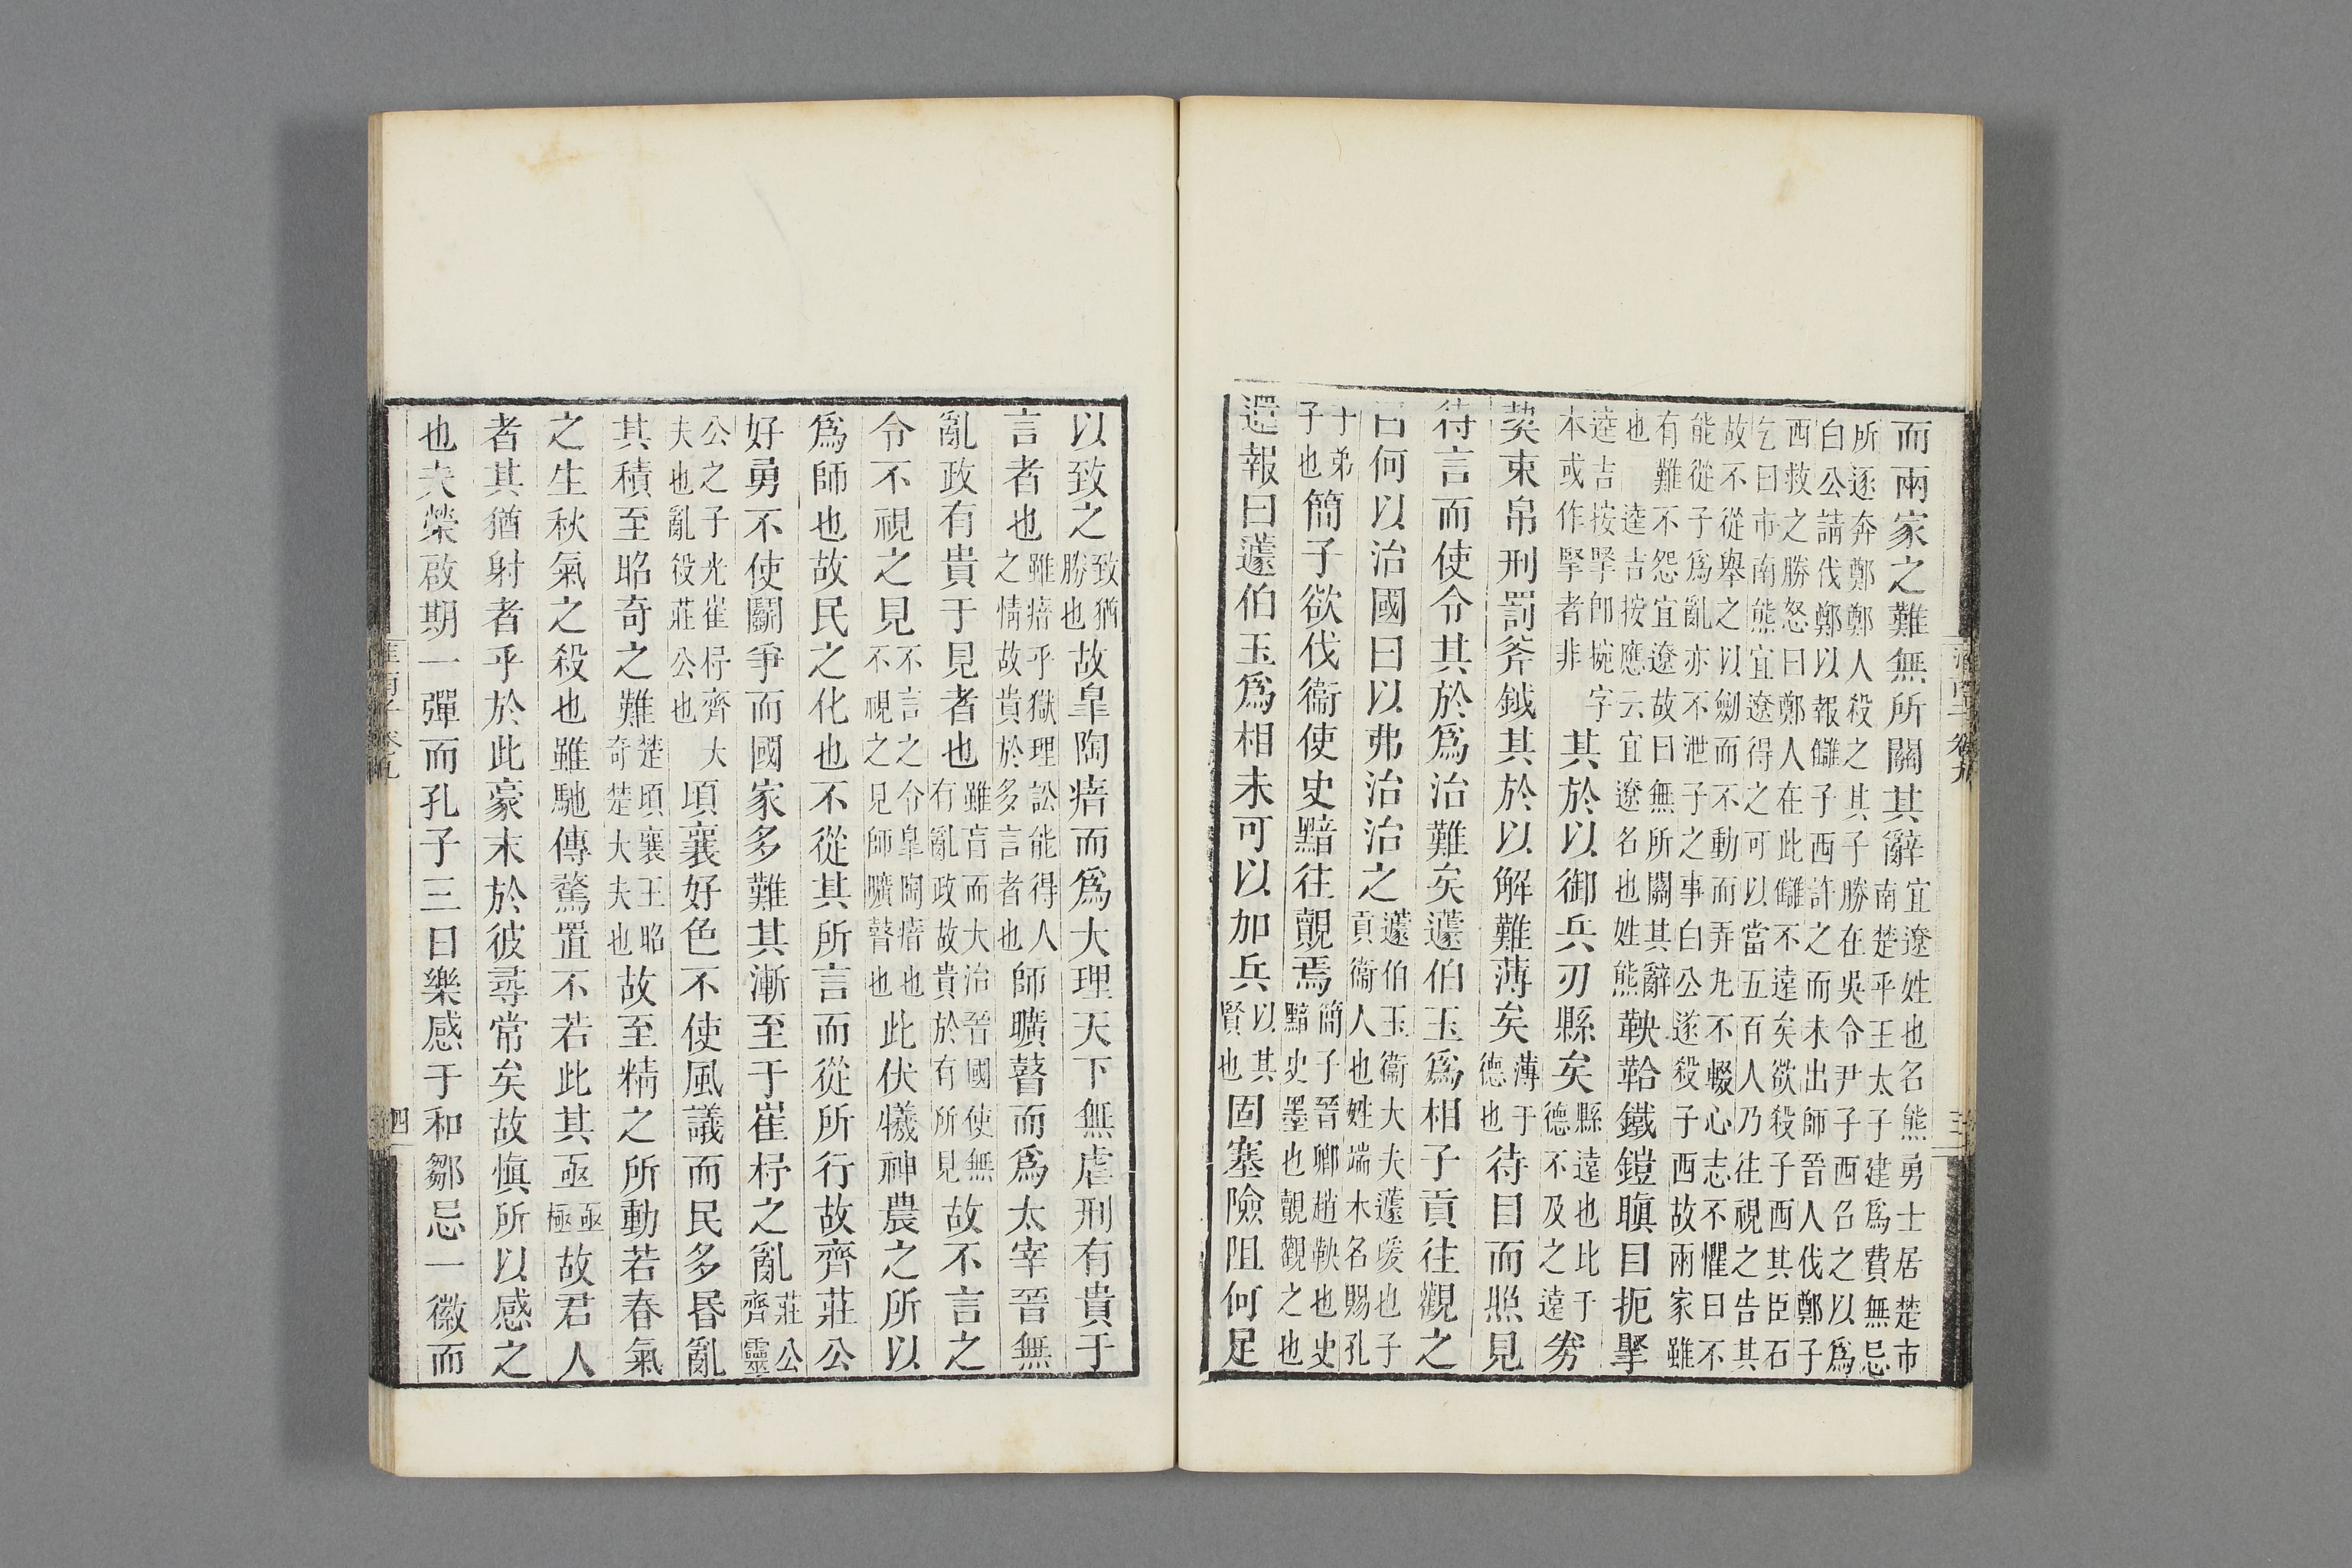 而兩家之難無所關其辭宜遼姓也名熊勇士居楚市南楚平王太子建爲費無忌
所逐奔鄭鄭人殺之其子勝在吳令尹子西召之以爲白公請伐鄭以報讎子西許之而未出師晉人伐鄭子
西救之勝怒曰鄭人在此讎不遠矣欲殺子西其臣石乞曰市南熊宜遼得之可以當五百人乃往視之告其
故不從舉之以劒而不動而弄丸不輟心志不懼曰不能從子爲亂亦不泄子之事白公遂殺子西故兩家雖
有難不怨宜遼故曰無所關其辭也逵吉按應云宜遼名也姓熊鞅鞈鐵鎧瞋目扼掔
逵吉按掔卽捥字本或作掔者非其於以御兵刃縣矣縣遠也比于德不及之遠券
契束帛刑罰斧鉞其於以解難薄矣薄于德也待目而照見
待言而使令其於爲治難矣蘧伯玉爲相子貢往觀之
曰何以治國曰以弗治治之蘧伯玉衞大夫蘧爰也子貢衞人也姓端木名賜孔
十弟子也簡子欲伐衞使史黯往覿焉簡子晉卿趙鞅也史黯史墨也覿觀之也
還報曰蘧伯玉爲相未可以加兵以其賢也固塞險阻何足
淮南子卷九
三
以致之致猶勝也故皐陶瘖而爲大理天下無虐刑有貴于
言者也雖瘖乎獄理訟能得人之情故貴於多言者也師曠瞽而爲太宰晉無
亂政有貴于見者也雖盲而大治晉國使無有亂政故貴於有所見故不言之
令不視之見不言之令皐陶瘖也不視之見師曠瞽也此伏犧神農之所以
爲師也故民之化也不從其所言而從所行故齊莊公
好勇不使鬭爭而國家多難其漸至于崔杼之亂莊公齊靈
公之子光崔杼齊大夫也亂役莊公也頃襄好色不使風議而民多昬亂
其積至昭奇之難楚頃襄王昭奇楚大夫也故至精之所動若春氣
之生秋氣之殺也雖馳傳騖置不若此其亟亟極故君人
者其猶射者乎於此豪末於彼尋常矣故愼所以感之
也夫榮啟期一彈而孔子三日樂感于和鄒忌一徽而
淮南子卷九
四